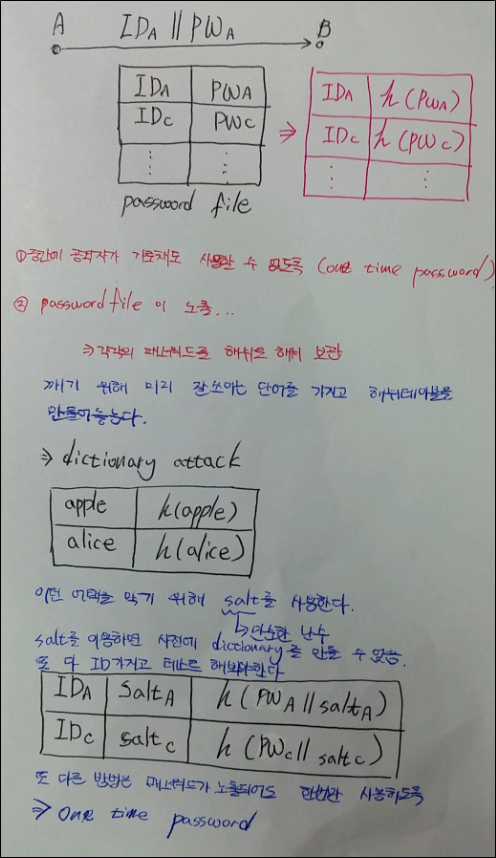 A ID_A || PW_A B
ID_A PW_A
ID_C PW_C
⋮ ⋮
password file
⇒
ID_A h(PW_A)
ID_C h(PW_C)
⋮ ⋮
① 중간에 공격자가 가로채도 사용할 수 없도록 (one time password)
② password file 이 노출...
⇒ 각각의 패스워드를 해쉬를 해서 보관
깨기 위해 미리 잘쓰는 단어를 가지고 해쉬테이블을
만들어놓는다.
⇒ dictionary attack
apple h(apple)
alice h(alice)
이런 어택을 막기 위해 salt를 사용한다.
↳ 단순한 난수
salt를 이용하면 사전에 dictionary를 만들 수 없음.
또 다 ID가지고 테스트 해봐야한다
ID_A salt_A h(PW_A || salt_A)
ID_C salt_C h(PW_C || salt_C)
또 다른 방법은 패스워드가 노출되어도 한번만 사용하도록
⇒ One time password